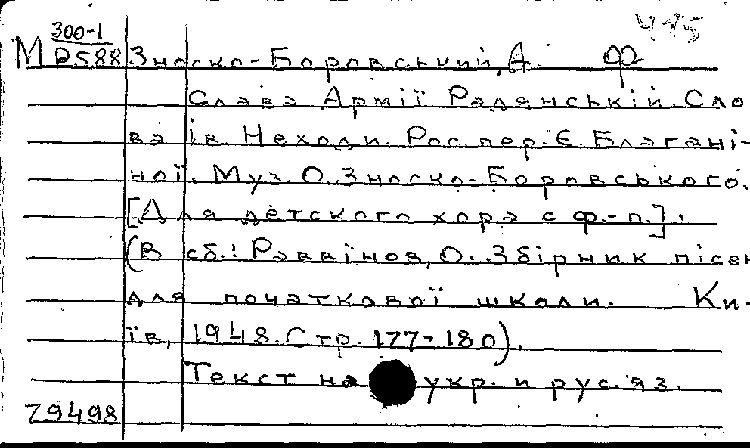 300-1
475
М D588 Зноско-Боровський, А. Ф
Слава Армії Радянській. Сло
ва Ів. Неходи. Рос. пер. Є. Благині-
ної. Муз. О. Зноско-Боровського.
[Для детского хора с ф.-п.].
(В сб.: Раввінов, О. Збірник пісен
для початкової школи. Ки-
їв, 1948. Стр. 177-180).
Текст на укр. и рус. яз.
79498